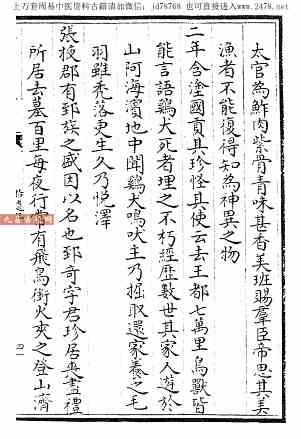 上万套周易中医古籍请加微信：jd78768 也可直接进入www.2478.net
太官為鮓肉紫骨青味甚香美班賜羣臣帝思其美
漁者不能復得知為神異之物
二年含塗國貢其珍怪其使云去王都七萬里鳥獸皆
能言語鷄犬死者埋之不朽經歷數世其家人遊於
山阿海濱地中聞鷄犬鳴吠主乃掘取還家養之毛
羽雖禿落更生久乃悅澤
張掖郡有郅族之盛因以名也郅奇字君珍居喪盡禮
所居去墓百里每夜行常有飛鳥銜火夾之登山濟